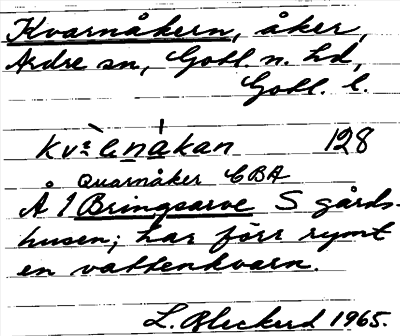 Kvarnåkern, åker,
Ardre sn, Gotl. n. hd,
Gotl. l.
128
Quarnåker CBA
Å 1 Bringsarve S gårds-
husen; har förr rymt
en vattenkvarn.
L. Bleckerd 1965.